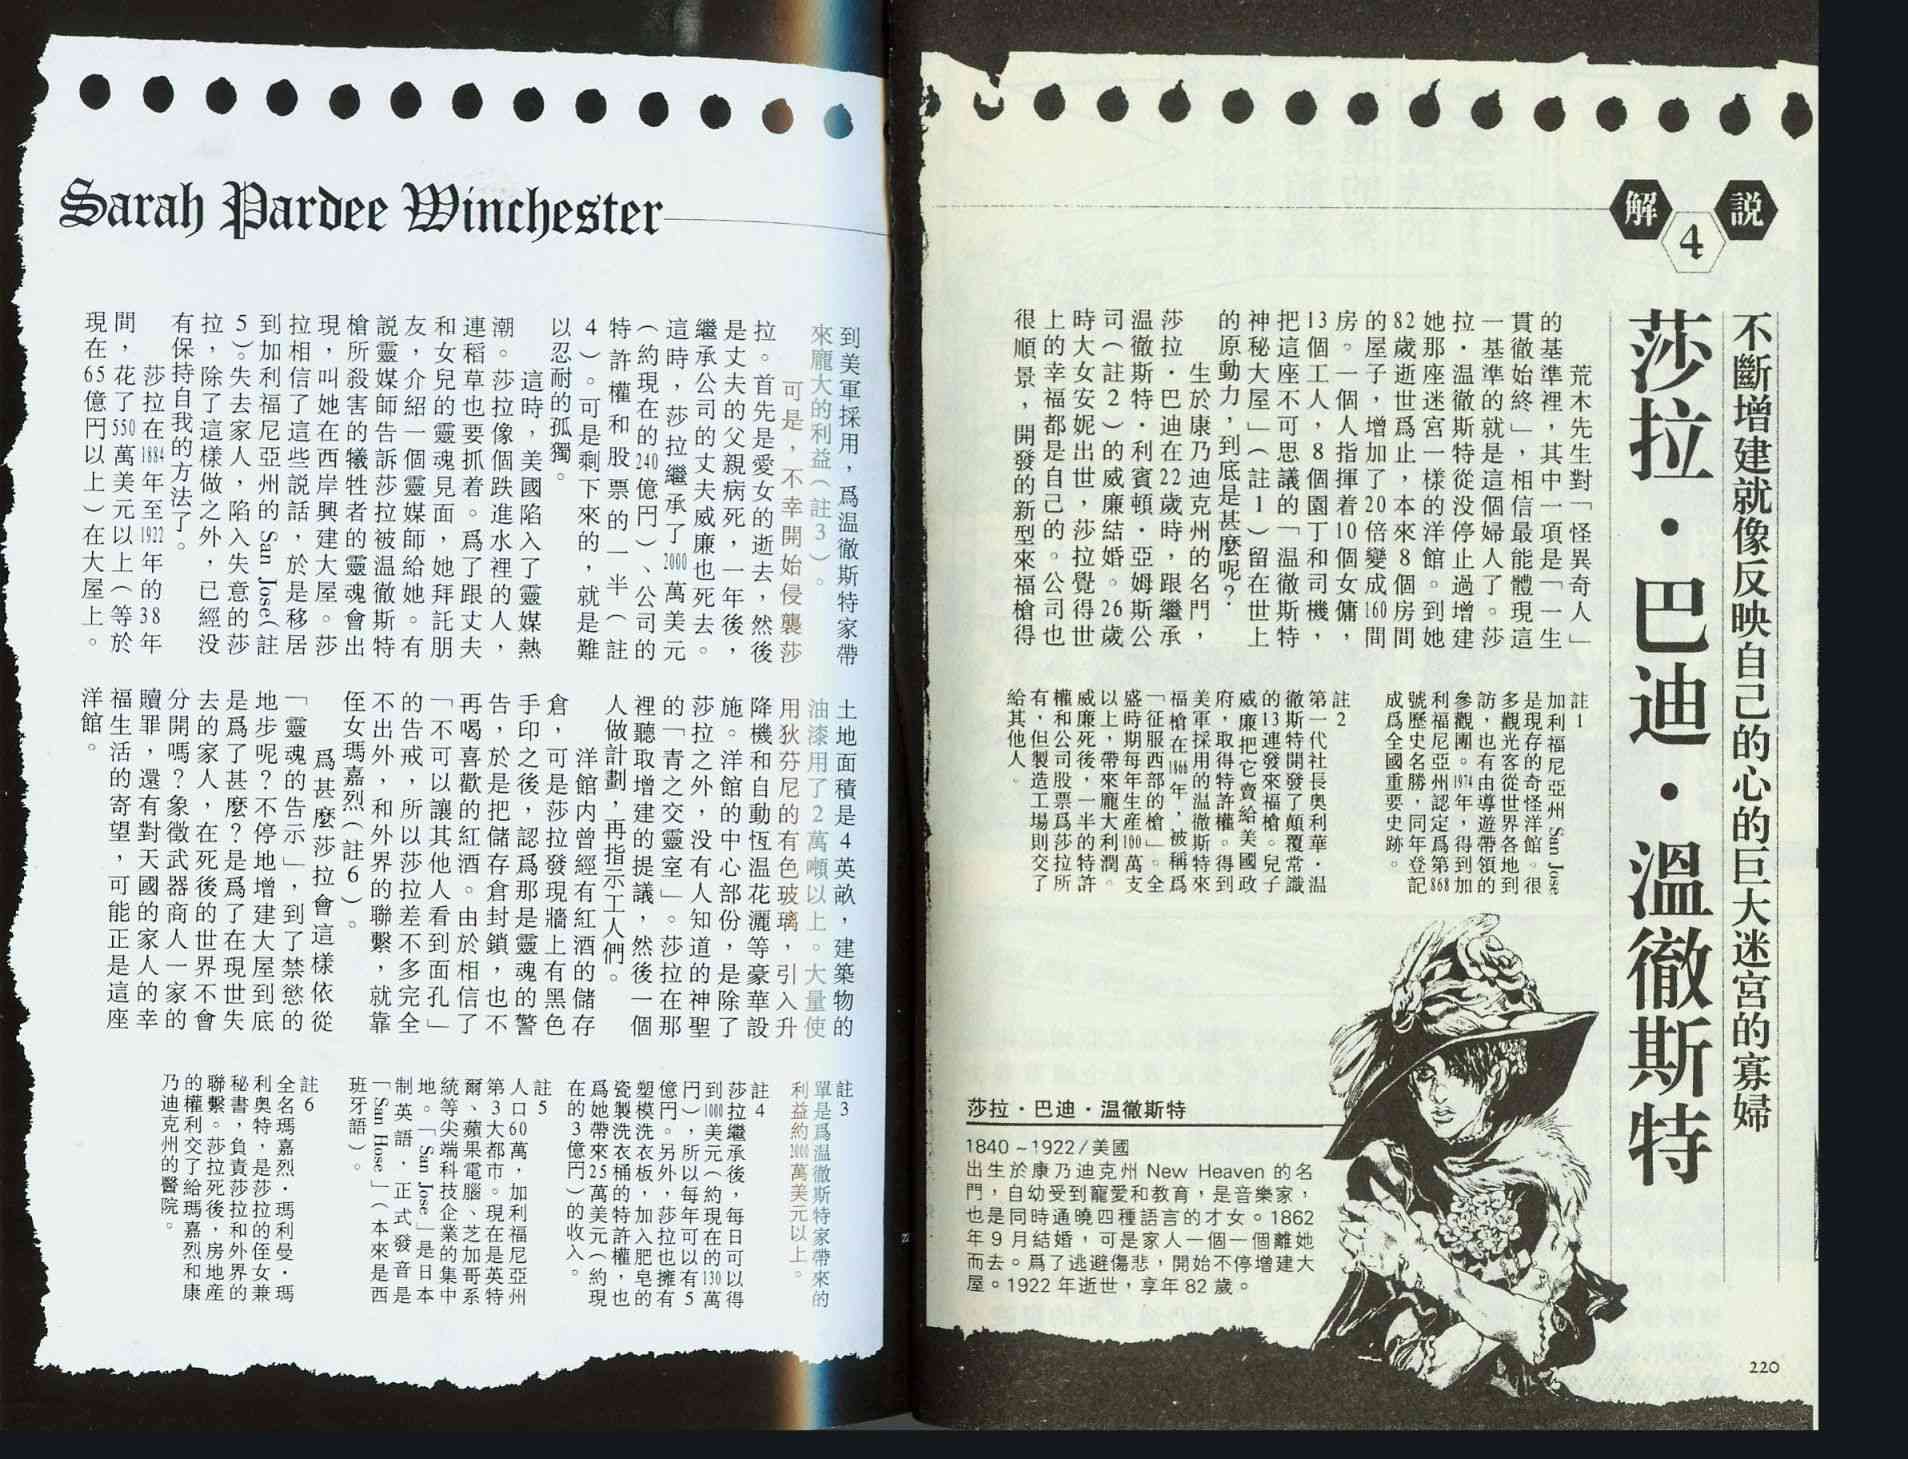 解
4
説
不斷增建就像反映自己的心的巨大迷宮的寡婦
莎拉・巴迪・溫徹斯特
荒木先生對「怪異奇人」
的基準裡，其中一項是「一生
貫徹始終」，相信最能體現這
一基準的就是這個婦人了。莎
拉・温徹斯特從没停止過增建
她那座迷宮一樣的洋館。到她
82歲逝世爲止，本來8個房間
的屋子，增加了20倍變成160間
房。一個人指揮着10個女傭，
13個工人，8個園丁和司機，
把這座不可思議的「温徹斯特
神秘大屋」（註1）留在世上
的原動力，到底是甚麼呢？
生於康乃迪克州的名門，
莎拉・巴迪在22歲時，跟繼承
温徹斯特・利賓頓・亞姆斯公
司（註2）的威廉結婚。26歲
時大女安妮出世，莎拉覺得世
上的幸福都是自己的。公司也
很順景，開發的新型來福槍得
註1
加利福尼亞州 San Jose
是現存的奇怪洋館。很
多觀光客從世界各地到
訪，也有由導遊帶領的
參觀團。1974年，得到加
利福尼亞州認定爲第868
號歷史名勝，同年登記
成爲全國重要史跡。
註2
第一代社長奥利華・温
徹斯特開發了顛覆常識
的13連發來福槍。兒子
威廉把它賣給美國政
府，取得特許權。得到
美軍採用的温徹斯特來
福槍在1866年，被稱爲
「征服西部的槍」。全
盛時期每年生産160萬支
以上，帶來龐大利潤。
威廉死後，一半的特許
權和公司股票爲莎拉所
有，但製造工場則交了
給其他人。
莎拉・巴迪・温徹斯特
1840～1922/美國
出生於康乃迪克州 New Heaven 的名
門，自幼受到寵愛和教育，是音樂家，
也是同時通曉四種語言的才女。1862
年9月結婚，可是家人一個一個離她
而去。爲了逃避傷悲，開始不停增建大
屋。1922年逝世，享年82歲。
220
Sarah Pardee Winchester
到美軍採用，爲温徹斯特家帶
來龐大的利益（註3）。
可是，不幸開始侵襲莎
拉。首先是愛女的逝去，然後
是丈夫的父親病死，一年後，
繼承公司的丈夫威廉也死去。
這時，莎拉繼承了2000萬美元
（約現在的240億円）、公司的
特許權和股票的一半（註
4）。可是剩下來的，就是難
以忍耐的孤獨。
這時，美國陷入了靈媒熱
潮。莎拉像個跌進水裡的人，
連稻草也要抓着。爲了跟丈夫
和女兒的靈魂見面，她拜託朋
友，介紹一個靈媒師給她。有
說靈媒師告訴莎拉被温徹斯特
槍所殺害的犧牲者的靈魂會出
現，叫她在西岸興建大屋。莎
拉相信了這些説話，於是移居
到加利福尼亞州的 San Jose（註
5）。失去家人，陷入失意的莎
拉，除了這樣做之外，已經没
有保持自我的方法了。
莎拉在1884年至1922年的38年
間，花了550萬美元以上（等於
現在65億円以上）在大屋上。
土地面積是4英畝，建築物的
油漆用了2萬噸以上。大量使
用狄芬尼的有色玻璃，引入升
降機和自動恆温花灑等豪華設
施。洋館的中心部份，是除了
莎拉之外，没有人知道的神聖
的「青之交靈室」。莎拉在那
裡聽取增建的提議，然後一個
人做計劃，再指示工人們。
洋館内曾經有紅酒的儲存
倉，可是莎拉發現牆上有黑色
手印之後，認爲那是靈魂的警
告，於是把儲存倉封鎖，也不
再喝喜歡的紅酒。由於相信了
「不可以讓其他人看到面孔」
的告戒，所以莎拉差不多完全
不出外，和外界的聯繫，就靠
侄女瑪嘉烈（註6）。
爲甚麼莎拉會這樣依從
「靈魂的告示」，到了禁慾的
地步呢？不停地增建大屋到底
是爲了甚麼？是爲了在現世失
去的家人，在死後的世界不會
分開嗎？象徵武器商人一家的
贖罪，還有對天國的家人的幸
福生活的寄望，可能正是這座
洋館。
註3
單是爲温徹斯特家帶來的
利益約2000萬美元以上。
註4
莎拉繼承後，每日可以得
到1000美元（約現在的130萬
円），所以每年可以有5
億円。另外，莎拉也擁有
塑模洗衣板，加入肥皂的
瓷製洗衣桶的特許權，也
爲她帶來25萬美元（約現
在的3億円）的收入。
註5
人口60萬，加利福尼亞州
第3大都市。現在是英特
爾、蘋果電腦、芝加哥系
統等尖端科技企業的集中
地。「San Jose」是日本
制英語，正式發音是
「San Hose」（本來是西
班牙語）。
註6
全名瑪嘉烈・瑪利曼・瑪
利奥特，是莎拉的侄女兼
秘書，負責莎拉和外界的
聯繫。莎拉死後，房地産
的權利交了給瑪嘉烈和康
乃迪克州的醫院。